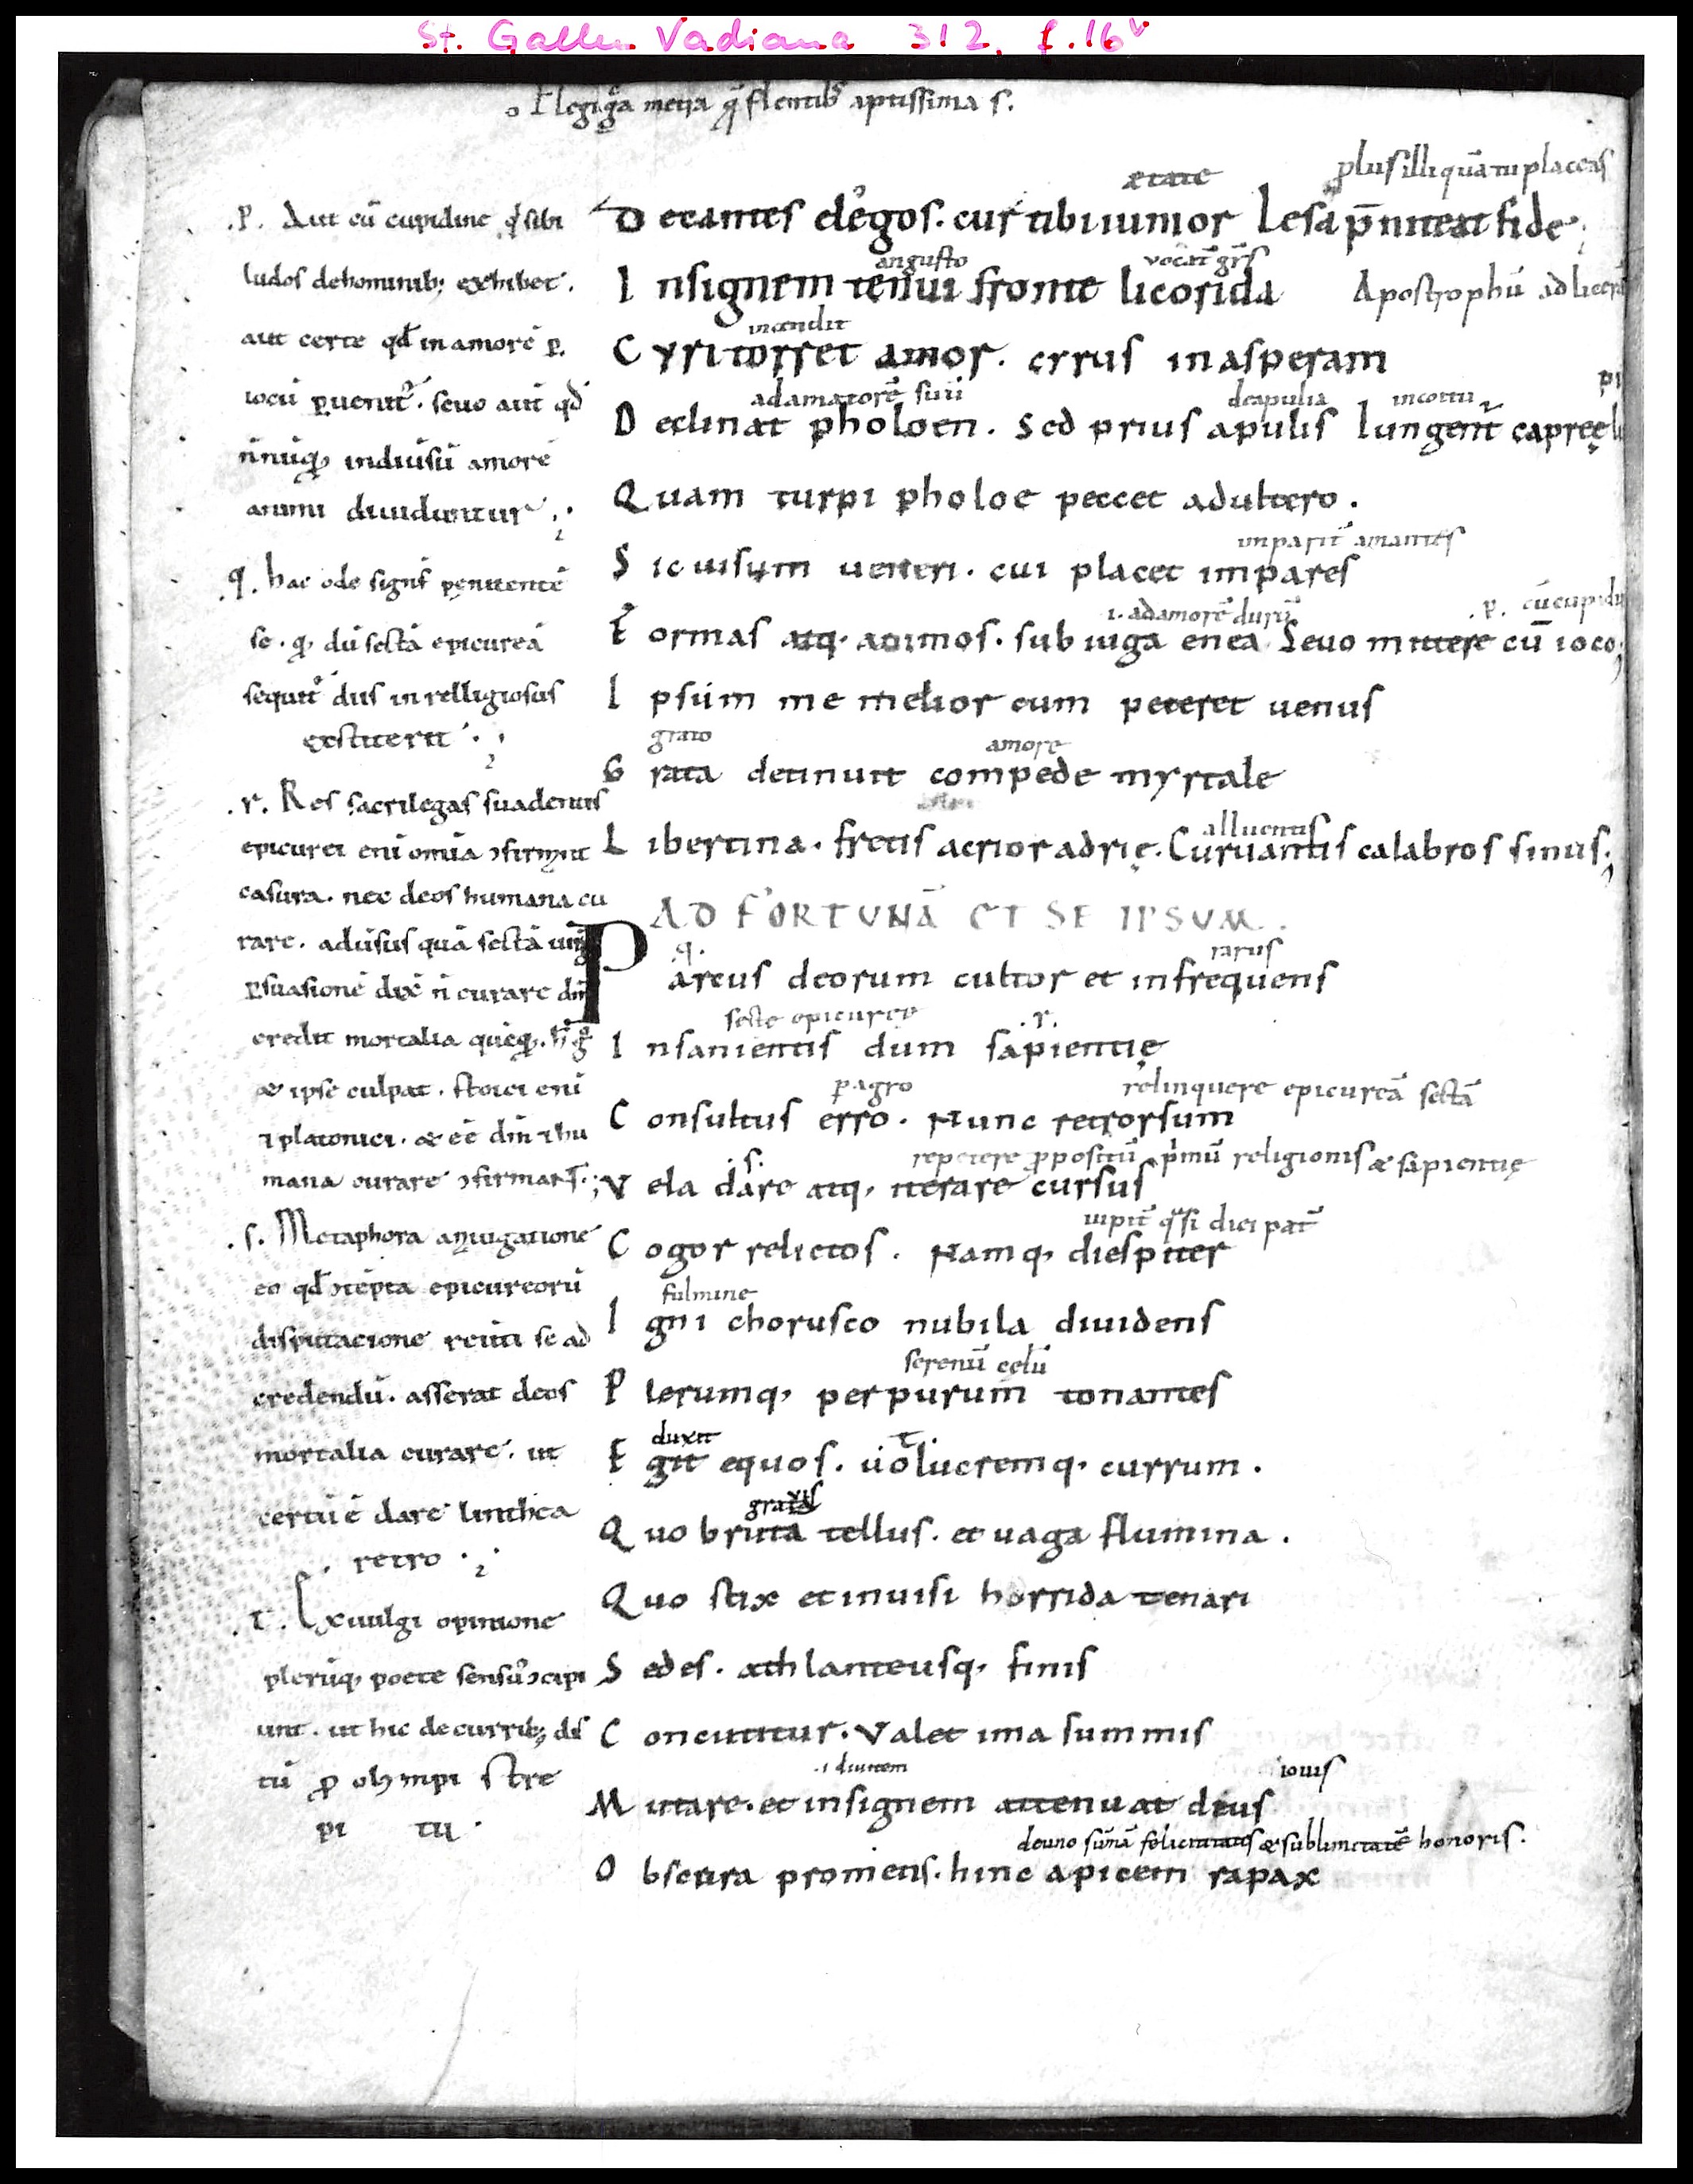 St. Gallen Vadiana 312, f.16v
aptissima s.
ętate
plus illi quā tu placeas
.p. Aut cū cupidine q̓ sibi
ludos de hominib; exhibet.
aut certe qđ in amorē
iocū seuo aut qđ
amorē
animi diuiduntur
.q. hac ode signif penitentē
se. dū sectā epicureā
diis inreligiosus
extiterit
.r. Res sacrilegas suadentis
epicurei eni omīa ɔfirmant
casura. nec deos humana cu
rare. quā sectā
curare
credit mortalia
& ipse culpat. stoici eni
& platonici.
mana curare
.s. Metaphora a nauigatione
eo qđ epicureorū
disputacione se ad
credendū. asserat deos
mortalia curare. ut
certū ē dare linthea
retro
.t. Ex uulgi opinione
plerūq, poete
unt. ut hic de
olympi stre
pi tu.
Decantes elegos. cur tibi iunior Lesa p̄niteat fide
angusto
Insignem tenui fronte licorida
Apostrophū ad
incendit
Cyri torret amor. cyrus in asperam
adamatorē suū
de apulia
Declinat pholoen. Sed prius apulis Iungent̄ capreę
Quam turpi pholoe peccet adultero.
amantes
Sic uisum ueneri. cui placet impares
.i. ad amorē durū
.p.
Formas atq. animos. sub iuga enea Seuo mittere cū ioco;
Ipsum me melior cum peteret uenus
grato
amore
Grata detinuit compede myrtale
Libertina. fretis acrior adrię. Curuantis calabros sinus;
AD FORTUNĀ ET SE IPSVM.
q.
rarus
Parcus deorum cultor et infrequens
secte epicuree
.r.
Insanientis dum sapientię
pagro
relinquere epicureā sectā
Consultus erro. Nunc retrorsum
.s.
repetere p̄positū p̄mū religionis & sapientię
Vela dare atq, iterare cursus
Cogor relictos. Namq, diespiter
fulmine
Igni chorusco nubila diuidens
serenū celū
Plerumq, per purum tonantes
duxit
t.
Egit equos. uolucremq, currum.
Quo bruta tellus. et uaga flumina.
Quo stix et inuisi horrida tenari
Sedes. athlanteusq, finis
Concutitur. Valet ima summis
iouis
Mutare. et insignem attenuat deus
& sublimitatē honoris.
Obscura promens. hinc apicem rapax